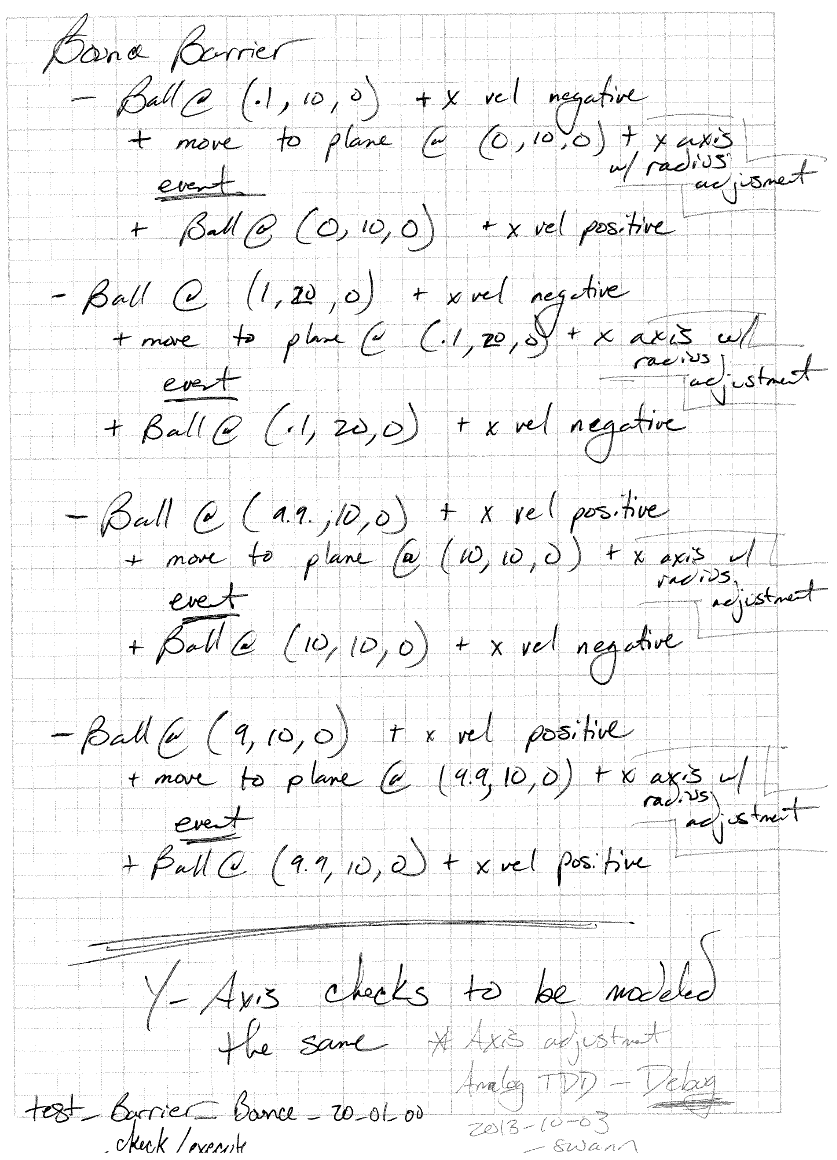 Bounce Barrier
- Ball @ (.1, 10, 0) + x vel negative
+ move to plane @ (0, 10, 0) + x axis
w/ radius
adjusment
event
+ Ball @ (0, 10, 0) + x vel positive
- Ball @ (1, 20, 0) + x vel negative
+ move to plane @ (.1, 20, 0) + x axis w/
radius
adjustment
event
+ Ball @ (.1, 20, 0) + x vel negative
- Ball @ (9.9, 10, 0) + x vel positive
+ move to plane @ (10, 10, 0) + x axis w/
radius
adjustment
event
+ Ball @ (10, 10, 0) + x vel negative
- Ball @ (9, 10, 0) + x vel positive
+ move to plane @ (9.9, 10, 0) + x axis w/
radius
adjustment
event
+ Ball @ (9.9, 10, 0) + x vel positive
Y-Axis checks to be modeled
the same * Axis adjustment
Analog TDD - Debug
test_Barrier_Bounce_20_01_00
2013-10-03
check/execute
- swann